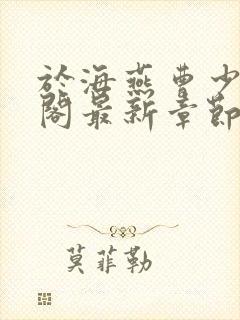 於海燕曹少
閣最新章節
莫菲勒